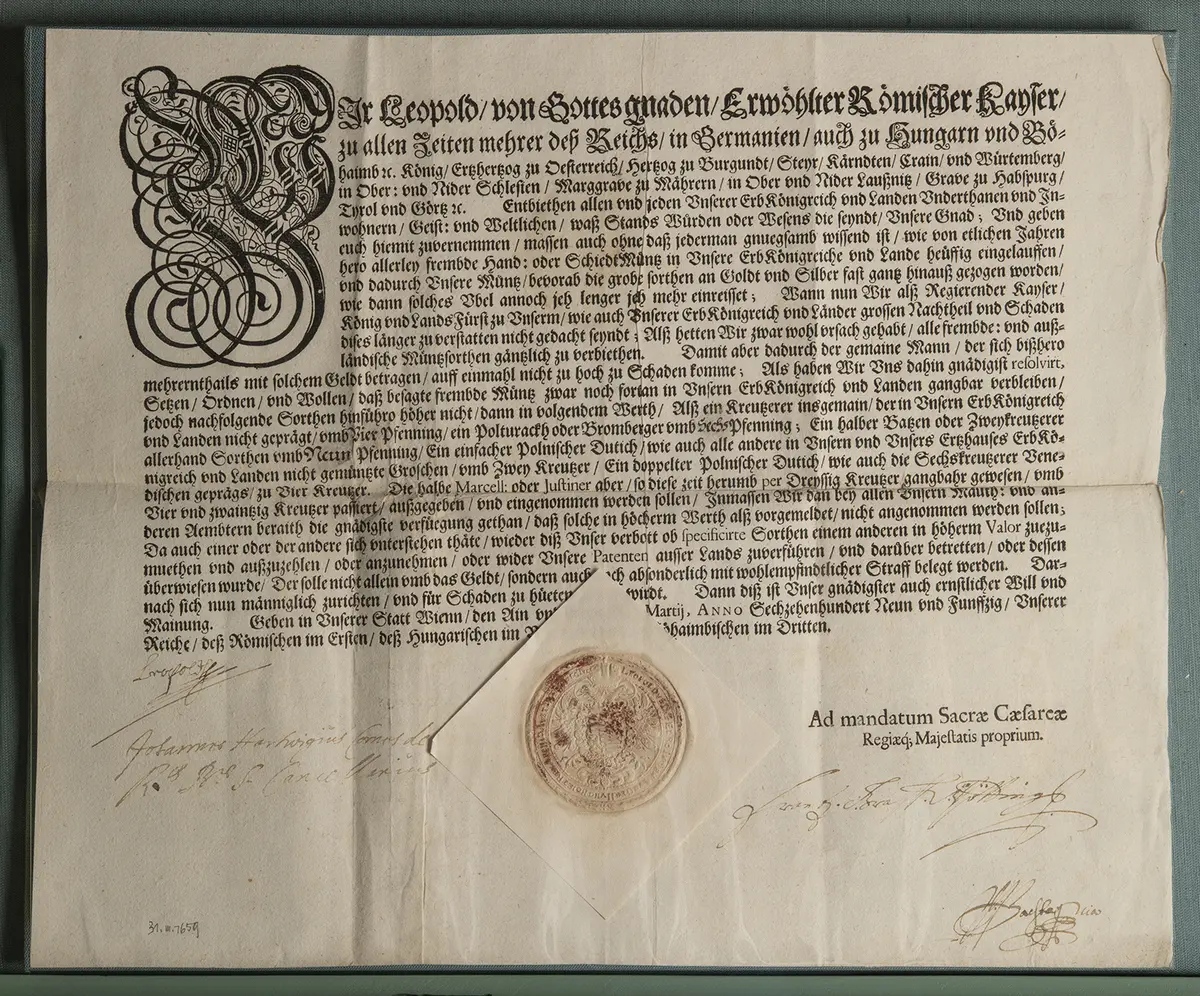 WIr Leopold/ von Gottes gnaden/ Erwöhlter Römischer Kayser/
zu allen Zeiten mehrer deß Reichs/ in Germanien/ auch zu Hungarn vnd Bö-
haimb ꝛc. König/ Ertzhertzog zu Oesterreich/ Hertzog zu Burgundt/ Steyr/ Kärndten/ Crain/ vnd Würtemberg/
in Ober: vnd Nider Schlesien/ Marggrave zu Mährern/ in Ober vnd Nider Laußnitz/ Grave zu Habspurg/
Tyrol vnd Görtz ꝛc. Entbiethen allen vnd jeden Vnserer ErbKönigreich vnd Landen Vnderthanen vnd In-
wohnern/ Geist: vnd Weltlichen/ waß Stands Würden oder Wesens die seyndt/ Vnsere Gnad; Vnd geben
euch hiemit zuvernemmen/ massen auch ohne daß jederman gnuegsamb wissend ist/ wie von etlichen Jahren
hero allerley frembde Hand: oder SchiedtMüntz in Vnsere ErbKönigreiche vnd Lande heüffig eingelauffen/
vnd dadurch Vnsere Müntz/ bevorab die grobe sorthen an Goldt vnd Silber fast gantz hinauß gezogen worden/
wie dann solches Vbel annoch jeh lenger jeh mehr einreisset; Wann nun Wir alß Regierender Kayser/
König vnd LandsFürst zu Vnserm/ wie auch Vnserer ErbKönigreich vnd Länder grossen Nachtheil vnd Schaden
dises länger zu verstatten nicht gedacht seyndt; Alß hetten Wir zwar wohl vrsach gehabt/ alle frembde: vnd auß-
ländische Müntzsorthen gäntzlich zu verbiethen. Damit aber dadurch der gemaine Mann/ der sich bißhero
mehrernthails mit solchem Geldt betragen/ auff einmahl nicht zu hoch zu Schaden komme; Als haben Wir Vns dahin gnädigist resolvirt,
Setzen/ Ordnen/ vnd Wollen/ daß besagte frembde Müntz zwar noch fortan in Vnsern ErbKönigreich vnd Landen gangbar verbleiben/
jedoch nachfolgende Sorthen hinführo höher nicht/ dann in volgendem Werth/ Alß ein Kreutzerer insgemain/ der in Vnsern ErbKönigreich
vnd Landen nicht geprägt/ vmb Vier Pfenning/ ein Polturackh oder Bromberger vmb Sechs Pfenning; Ein halber Batzen oder Zweykreutzerer
allerhand Sorthen vmb Neun Pfenning/ Ein einfacher Polnischer Dutich/ wie auch alle andere in Vnsern vnd Vnsers Ertzhauses ErbKö-
nigreich vnd Landen nicht gemüntzte Groschen/ vmb Zwey Kreutzer/ Ein doppelter Polnischer Dutich/ wie auch die Sechskreutzerer Vene-
dischen geprägs/ zu Vier Kreutzer. Die halbe Marcell: oder Justiner aber/ so diese zeit herumb per Dreyssig Kreutzer gangbahr gewesen/ vmb
Vier vnd zwaintzig Kreutzer passiert/ außgegeben/ vnd eingenommen werden sollen/ Inmassen Wir dan bey allen Vnsern Mauth: vnd an-
deren Aembtern beraith die gnädigste verfüegung gethan/ daß solche in höcherm Werth alß vorgemeldet/ nicht angenommen werden sollen;
Da auch einer oder der andere sich vnterstehen thäte/ wieder diß Vnser verbott ob specificirte Sorthen einem anderen in höherm Valor zuezu-
muethen vnd außzuzehlen/ oder anzunehmen/ oder wider Vnsere Patenten ausser Lands zuverführen/ vnd darüber betretten/ oder dessen
überwiesen wurde/ Der solle nicht allein vmb das Geldt/ sondern auch absonderlich mit wohlempfindtlicher Straff belegt werden. Dar-
nach sich nun männiglich zurichten/ vnd für Schaden zu hüeten wirdt. Dann diß ist Vnser gnädigster auch ernstlicher Will vnd
Mainung. Geben in Vnserer Statt Wienn/ den Ain Martij, ANNO Sechzehenhundert Neun vnd Funffzig/ Vnserer
Reiche/ deß Römischen im Ersten/ deß Hungarischen im Böhaimbischen im Dritten.
Leopold
Ad mandatum Sacræ Cæsareæ
Regiæq; Majestatis proprium.
Johannes Hartwigius Comes de
31.III.1659